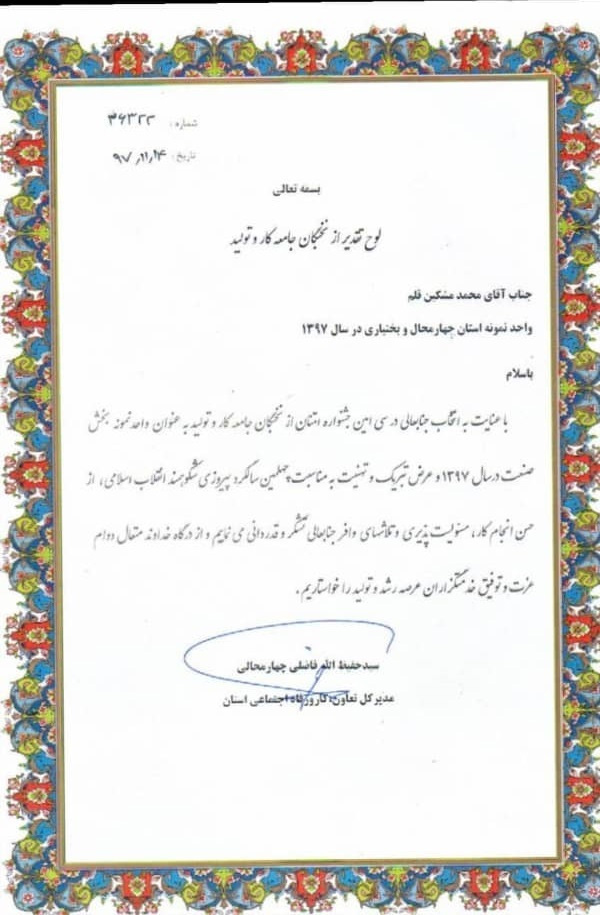 شماره : ۳۶۳۲۲
تاریخ : ۹۷/۱۱/۱۴
بسمه تعالی
لوح تقدیر از نخبگان جامعه کار و تولید
جناب آقای محمد مشکین قلم
واحد نمونه استان چهارمحال و بختیاری در سال ۱۳۹۷
باسلام
با عنایت به انتخاب جنابعالی در سی امین جشنواره امتنان از نخبگان جامعه کار و تولید به عنوان واحد نمونه بخش
صنعت درسال ۱۳۹۷ و عرض تبریک و تهنیت به مناسبت چهلمین سالگرد پیروزی شکوهمند انقلاب اسلامی، از
حسن انجام کار، مسئولیت پذیری و تلاشهای وافر جنابعالی تشکر و قدردانی می نمایم و از درگاه خداوند متعال دوام
عزت و توفیق خدمتگزاران عرصه رشد و تولید را خواستاریم.
سیدحفیظ الله فاضلی چهارمحالی
مدیرکل تعاون، کار و رفاه اجتماعی استان